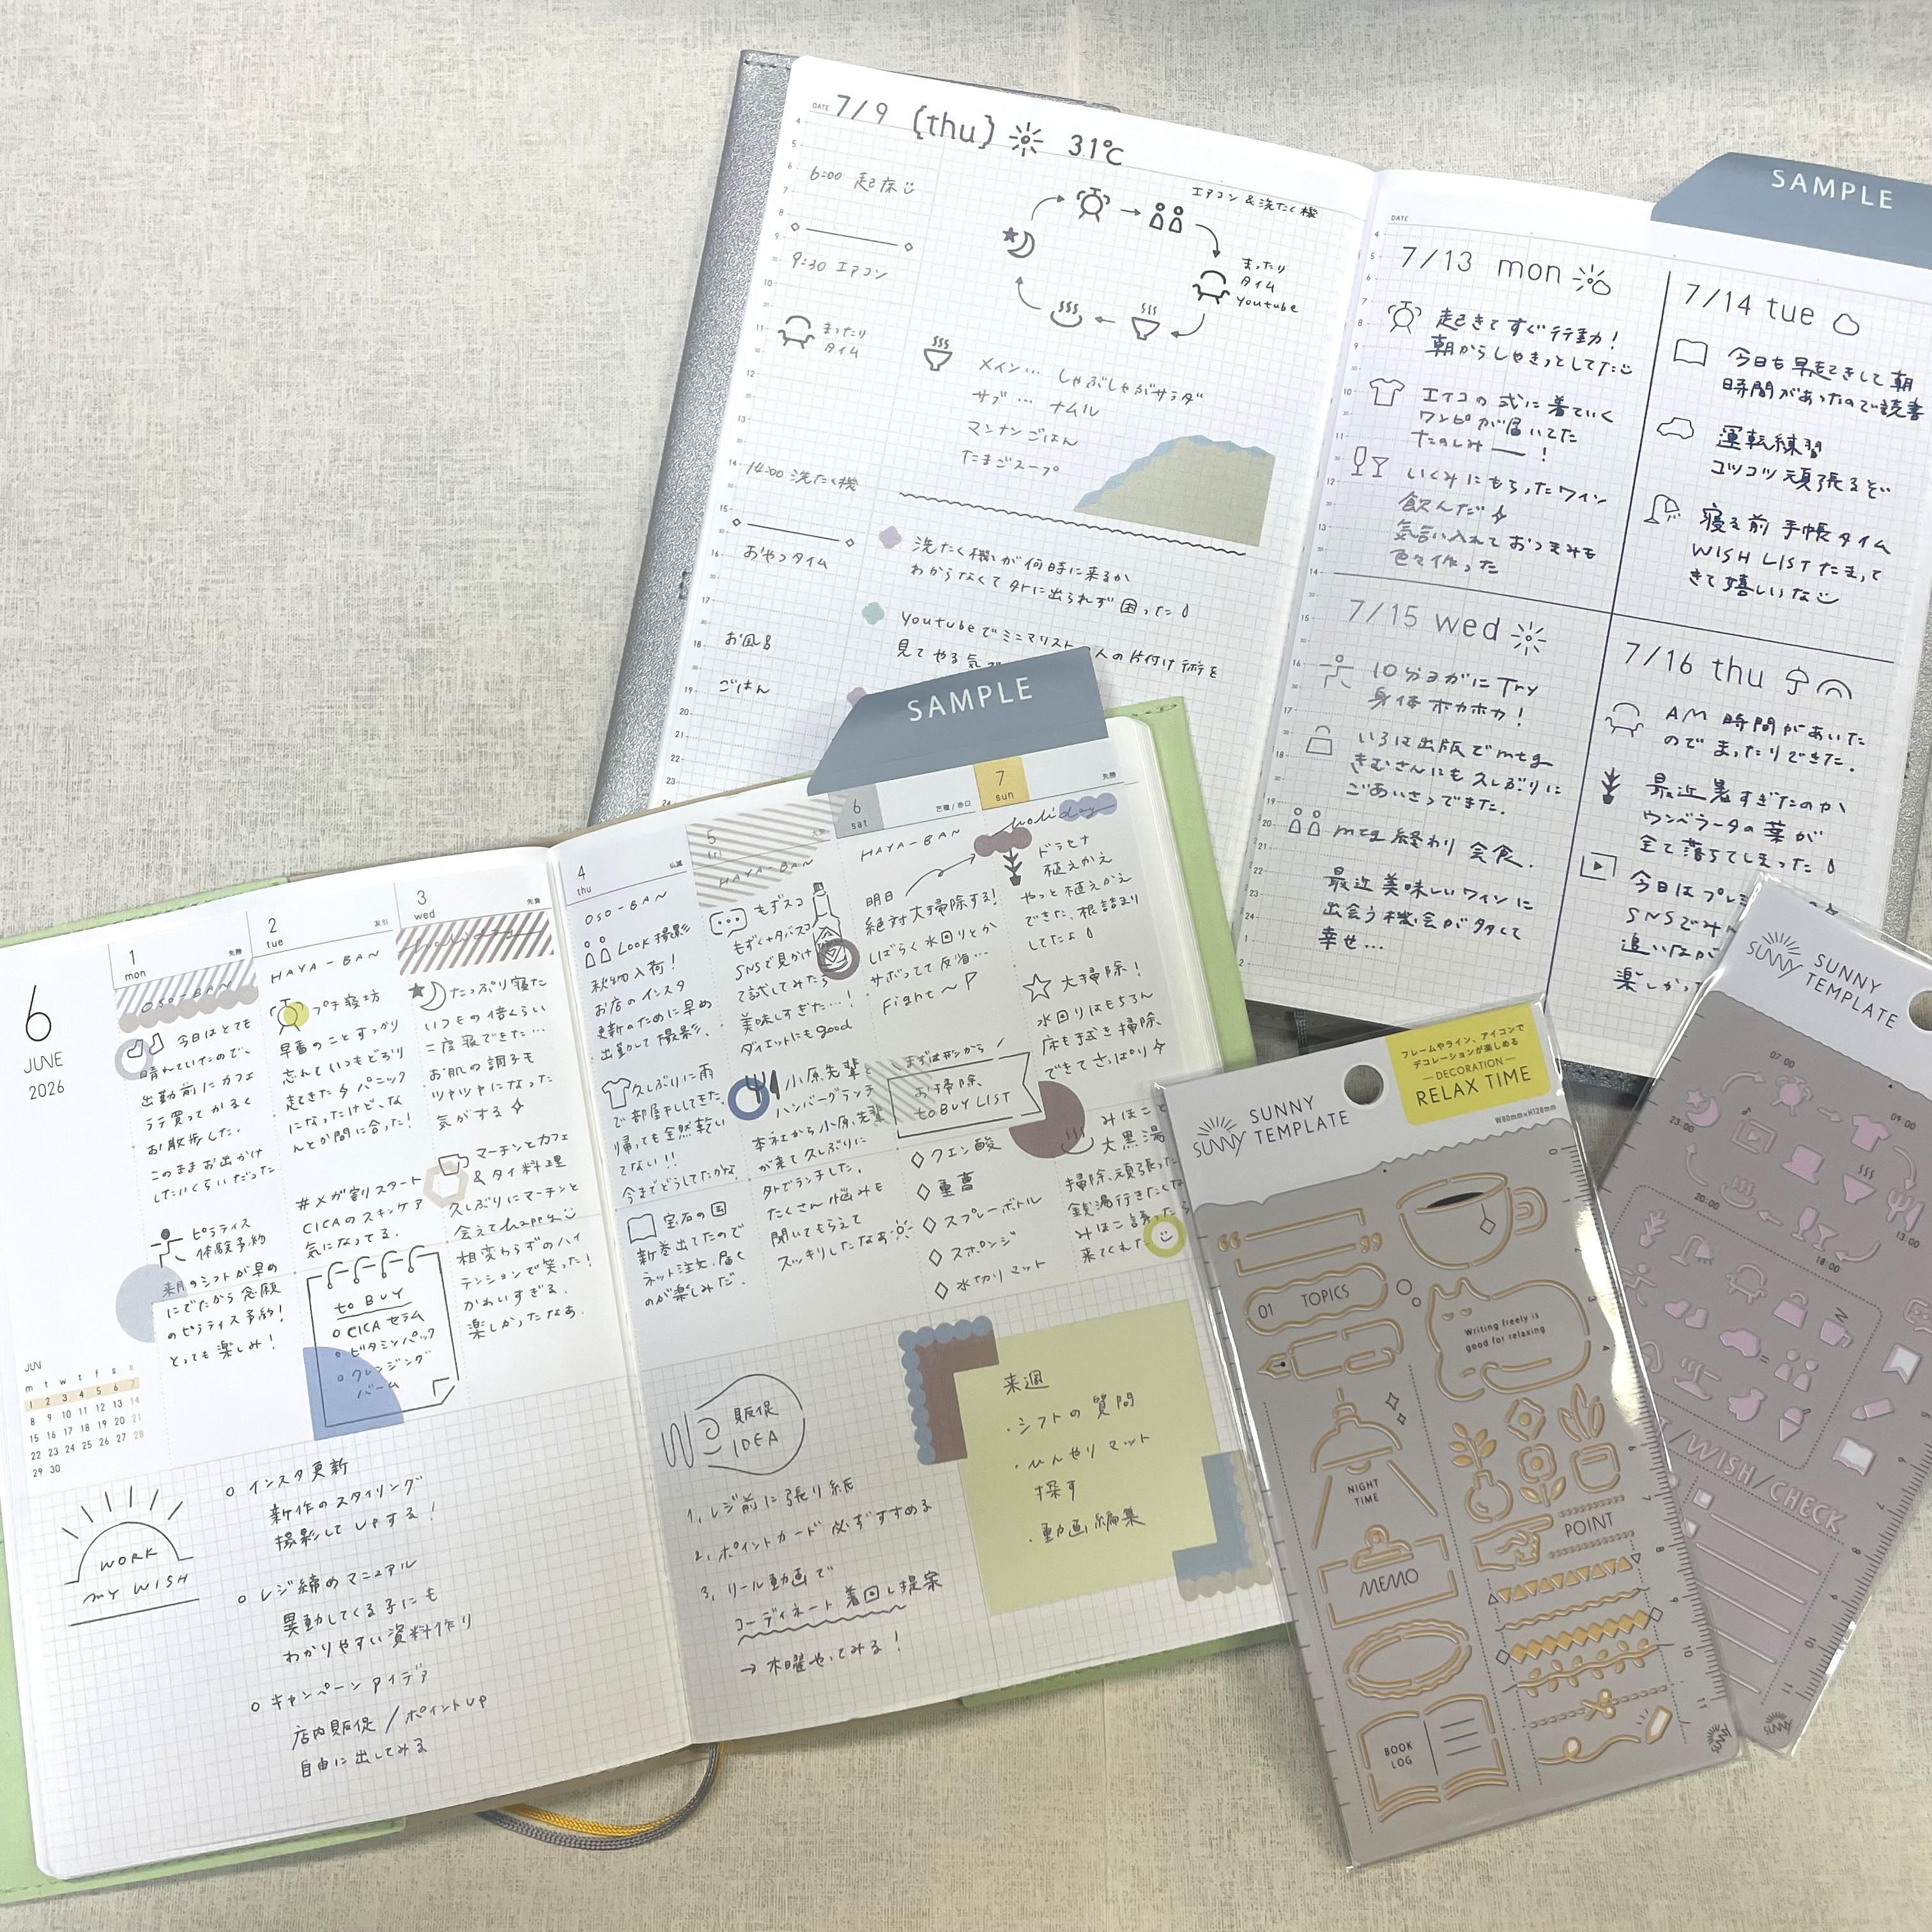 DATE 7/9 {thu} 31℃
6:00 起床
9:30 エアコン
まったり
タイム
14:00 洗たく機
おやつタイム
お風呂
ごはん
エアコン & 洗たく機
まったり
タイム
Youtube
メイン… しゃぶしゃぶサラダ
サブ … ナムル
マンナンごはん
たまごスープ
洗たく機が何時に来るか
わからなくて外に出られず困った
Youtubeでミニマリスト
人の片付け術を
見てやる気
SAMPLE
DATE
7/13 mon
起きてすぐ行動!
朝からしゃきっとしてた
ワンピが届いてた
たのしみ ー !
いくみにもらったワイン
飲んだ
気合い入れておつまみも
色々作った
7/14 tue
今日も早起きして朝
時間があったので読書
運転練習
コツコツ頑張るぞ
寝る前 手帳タイム
WISH LIST たまって
きて嬉しいな
7/15 wed
10分ヨガにTry
身体ホカホカ!
いろは出版でmtg
きむさんにも久しぶりに
ごあいさつできた.
mtg 終わり 会食.
最近美味しいワインに
出会う機会が多くて
幸せ…
7/16 thu
AM 時間があいた
のでまったりできた.
最近暑すぎたのか
ウンベラータの葉が
全て落ちてしまった
今日はプレ
SNSでみん
追いながら
楽しかっ
SAMPLE
6
JUNE
2026
JUN
m t w t f s s
1 2 3 4 5 6 7
8 9 10 11 12 13 14
15 16 17 18 19 20 21
22 23 24 25 26 27 28
29 30
1
mon
先勝
OSO-BAN
今日はとても
晴れていたので、
出勤前にカフェ
ラテ買ってかるく
お散歩した.
このままお出かけ
したいくらいだった
ピラティス
体験予約
来月のシフトが早め
にでたから念願
のピラティス予約!
とっても楽しみ!
2
tue
友引
HAYA-BAN
プチ寝坊
早番のことすっかり
忘れていつもどおり
起きた パニック
になったけど、な
んとか間に合った!
#メガ割りスタート
CICAのスキンケア
気になってる.
to BUY
CICA セラム
ビタミンパック
クレンジング
バーム
3
wed
先負
たっぷり寝た
いつもの倍くらい
二度寝できた…
お肌の調子も
ツヤツヤになった
気がする
マーチンとカフェ
& タイ料理
久しぶりにマーチンと
会えてhappy
相変わらずのハイ
テンションで笑った!
かわいすぎる.
楽しかったなあ.
4
thu
仏滅
OSO-BAN
LOOK 撮影
秋物入荷!
お店のインスタ
更新のために早め
出勤して撮影.
久しぶりに雨
で部屋干ししてきた.
帰っても全然乾い
てない!!
今までどうしてたかな.
宝石の国
新巻出てたので
ネット注文. 届く
のが楽しみだ.
5
fri
HAYA-BAN
もずスコ
もずく+タバスコ
SNSで見かけ
て試してみたら
美味しすぎた…!
ダイエットにもgood
小原先輩と
ハンバーグランチ
本社から小原先輩
が来て久しぶりに
外でランチした.
たくさん悩みも
聞いてもらえて
スッキリしたなあ
6
sat
芒種/赤口
HAYA-BAN
明日
絶対大掃除する!
しばらく水回りとか
サボってて反省…
Fight~
まずは形から
お掃除
to BUY LIST
クエン酸
重曹
スプレーボトル
スポンジ
水切りマット
7
sun
先勝
holiday
ドラセナ
植えかえ
やっと植えかえ
できた、根詰まり
してたよ
大掃除!
水回りはもちろん
床も拭き掃除
できてさっぱり
みほこと
大黒湯
掃除、頑張った
銭湯行きたくな
みほこ誘ったら
来てくれた
WORK
MY WISH
インスタ更新
新作のスタイリング
撮影してUPする!
レジ締めマニュアル
異動してくる子にも
わかりやすい資料作り
キャンペーンアイデア
店内販促/ポイントUP
自由に出してみる
販促
IDEA
1, レジ前に張り紙
2, ポイントカード必ずすすめる
3, リール動画で
コーディネート着回し提案
→ 木曜やってみる!
来週
・シフトの質問
・ひんやりマット
探す
・動画編集
SUNNY
SUNNY
TEMPLATE
フレームやライン、アイコンで
デコレーションが楽しめる
—DECORATION—
RELAX TIME
W80mm×H128mm
01 TOPICS
Writing freely is
good for relaxing
NIGHT
TIME
POINT
MEMO
BOOK
LOG
SUNNY
SUNNY
SUNNY
TEMPLATE
07:00
09:00
23:00
20:00
13:00
18:00
/WISH/CHECK
SUNNY